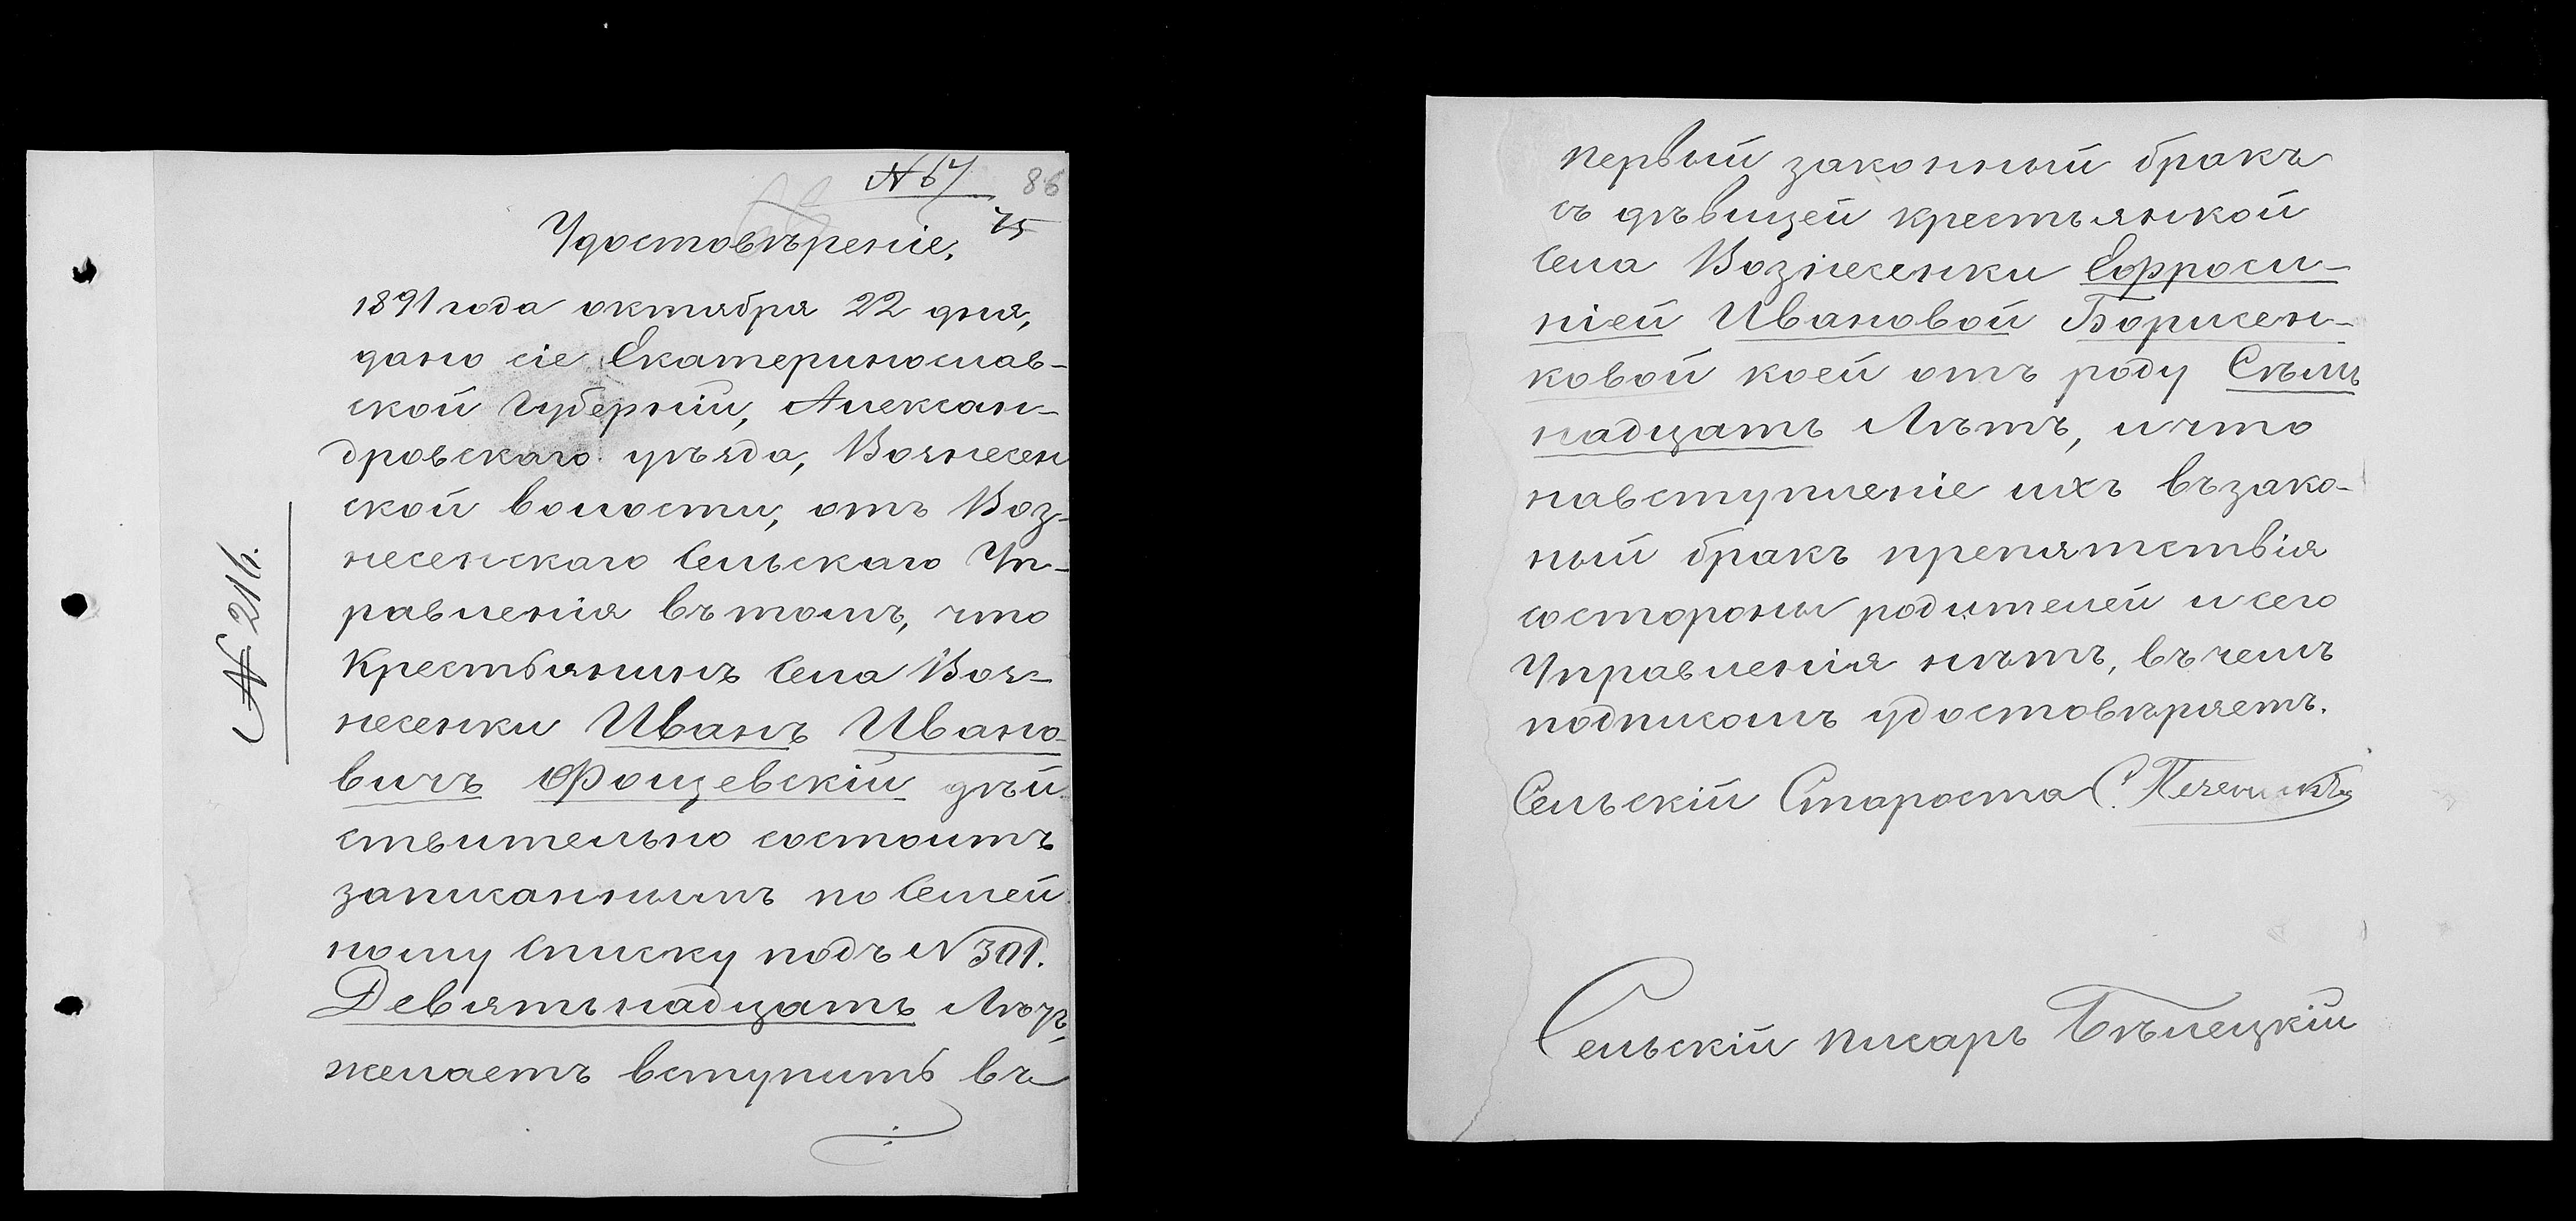 № 67
86
75
Удостовѣреніе.
1891 года октября 22 дня,
дано сіе Екатеринослав-
ской Губерніи, Алексан-
дровскаго уѣзда, Вознесен
ской волости, отъ Воз-
несенскаго Сельскаго Уп-
равленія въ томъ, что
Крестьянинъ Села Воз-
несенки Иванъ Ивано-
вичъ Фощевскій дѣй-
ствительно состоитъ
записаннымъ по Семей
ному списку подъ № 301.
Девятьнадцать Лѣтъ,
желаетъ вступить въ
№ 216.
первый законный бракъ
съ дѣвицей крестьянкой
Села Вознесенки Ефроси-
ніей Ивановой Борисен-
ковой коей отъ роду Сѣмь
надцать Лѣтъ, и что
навступленіе ихъ възако-
ный бракъ препятствія
состороны родителей и сего
Управленія нѣтъ, въ чемъ
подписомъ удостовѣряетъ.
Сельскій Староста С.
Сельскій писарь Бѣлецкій